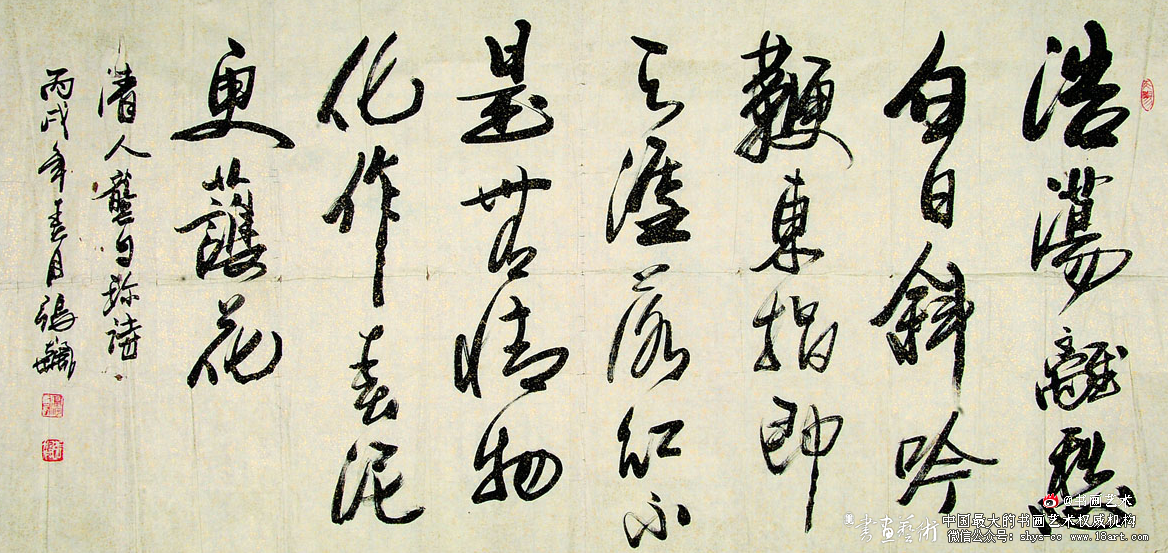 浩蕩離愁
白日斜吟
鞭東指即
天涯落紅不
是無情物
化作春泥
更護花
清人龔自珍詩
丙戌年春月張飈
@书画艺术
書畫藝術
中国最大的书画艺术权威机构
微信公众号：shys-cc www.18art.com